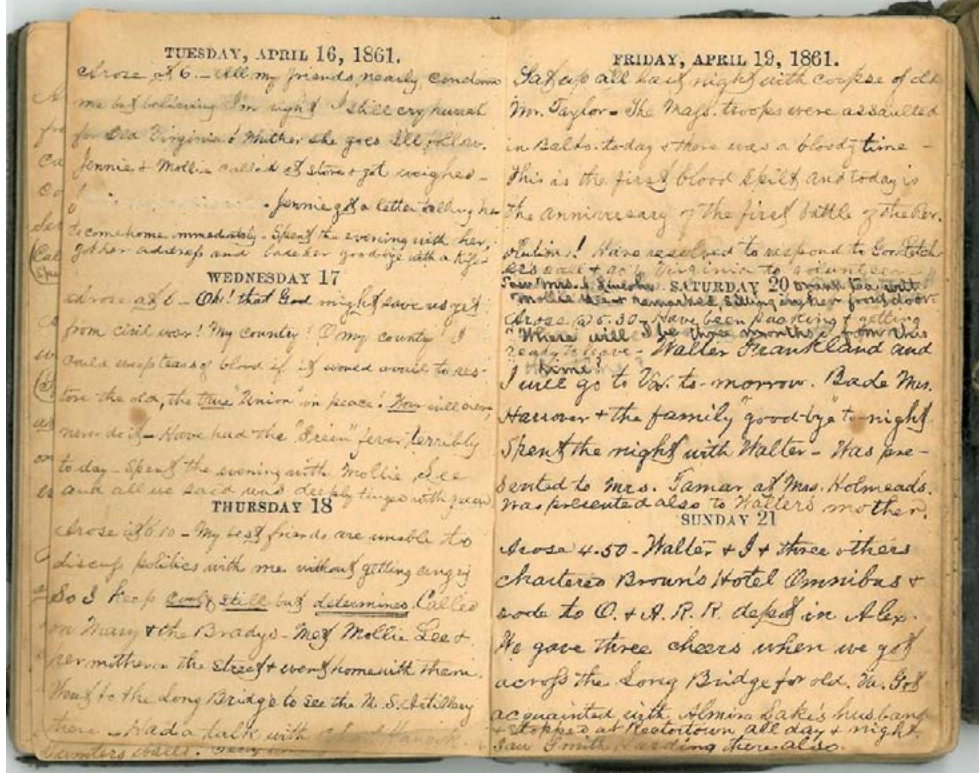 TUESDAY, APRIL 16, 1861.
Arose at 6. - All my friends nearly condemn
me but believing I'm right I still cry hurrah
for Old Virginia! Whither she goes I'll follow.
Jennie & Mollie called at store & got weighed -
Jennie got a letter telling her
to come home immediately - Spent the evening with her,
got her address and bade her goodbye with a kiss
WEDNESDAY 17
Arose at 6 - Oh! that God might save us yet
from civil war! My country! O my country! I
could weep tears of blood if it would avail to res-
tore the old, the true "Union" in peace! War will
never do it - Have had the "Green" fever terribly
today - Spent the evening with Mollie Lee
and all we said was deeply tinged with green
THURSDAY 18
Arose at 6.10 - My best friends are unable to
discuss politics with me without getting angry
So I keep cool & still but determined. Called
on Mary & the Bradys - Met Mollie Lee &
her mother on the street & went home with them.
Went to the Long Bridge to see the U. S. Artillery
there - Had a talk with
Sumters walls.
FRIDAY, APRIL 19, 1861.
Sat up all last night with corpse of old
Mr. Taylor - The Mass. troops were assaulted
in Balto. today & there was a bloody time -
This is the first blood spilt and today is
the anniversary of the first battle of the Rev-
olution! Have resolved to respond to Gov. Letch-
er's call & go to Virginia to volunteer -
Saw Mrs. A. Lincoln
SATURDAY 20
Drank tea with
Mollie & remarked, sitting in her front door
Arose @ 5.30 - Have been packing & getting
"Where will I be three months from this
ready to leave - Walter Frankland and
time?"
I will go to Va. to-morrow. Bade Mrs.
Harrover & the family "good-bye" to-night
Spent the night with Walter - Was pre-
sented to Mrs. Tamar at Mrs. Holmead's.
Was presented also to Walter's mother.
SUNDAY 21
Arose 4.50 - Walter & I & three others
chartered Brown's Hotel Omnibus &
rode to O. & A. R. R. depot in Alex.
We gave three cheers when we got
across the Long Bridge for old Va. Got
acquainted with Almira Lake's husband
& stopped at Rectortown all day & night,
Saw Smith Harding there also.